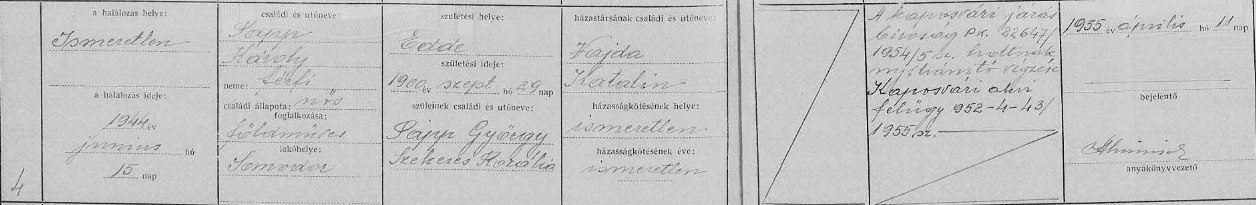 4
a halálozás helye:
Ismeretlen
a halálozás ideje:
1944 év
június hó
15 nap
családi és utóneve:
Papp
Károly
neme: férfi
családi állapota: nős
foglalkozása:
földműves
lakóhelye:
Somodor
születési helye:
Edde
születési ideje:
1900 év szept hó 29 nap
szüleinek családi és utóneve:
Papp György
Szekeres Rozália
házastársának családi és utóneve:
Vajda
Katalin
házasságkötésének helye:
ismeretlen
házasságkötésének éve:
ismeretlen
A kaposvári járás
bíróság Pk. 22647/
1954/5 sz. holtnak
nyilvánító végzése
Kaposvári alan
félügy 952-4-43/
1955 sz.
1955 év április hó 11 nap
bejelentő
anyakönyvvezető